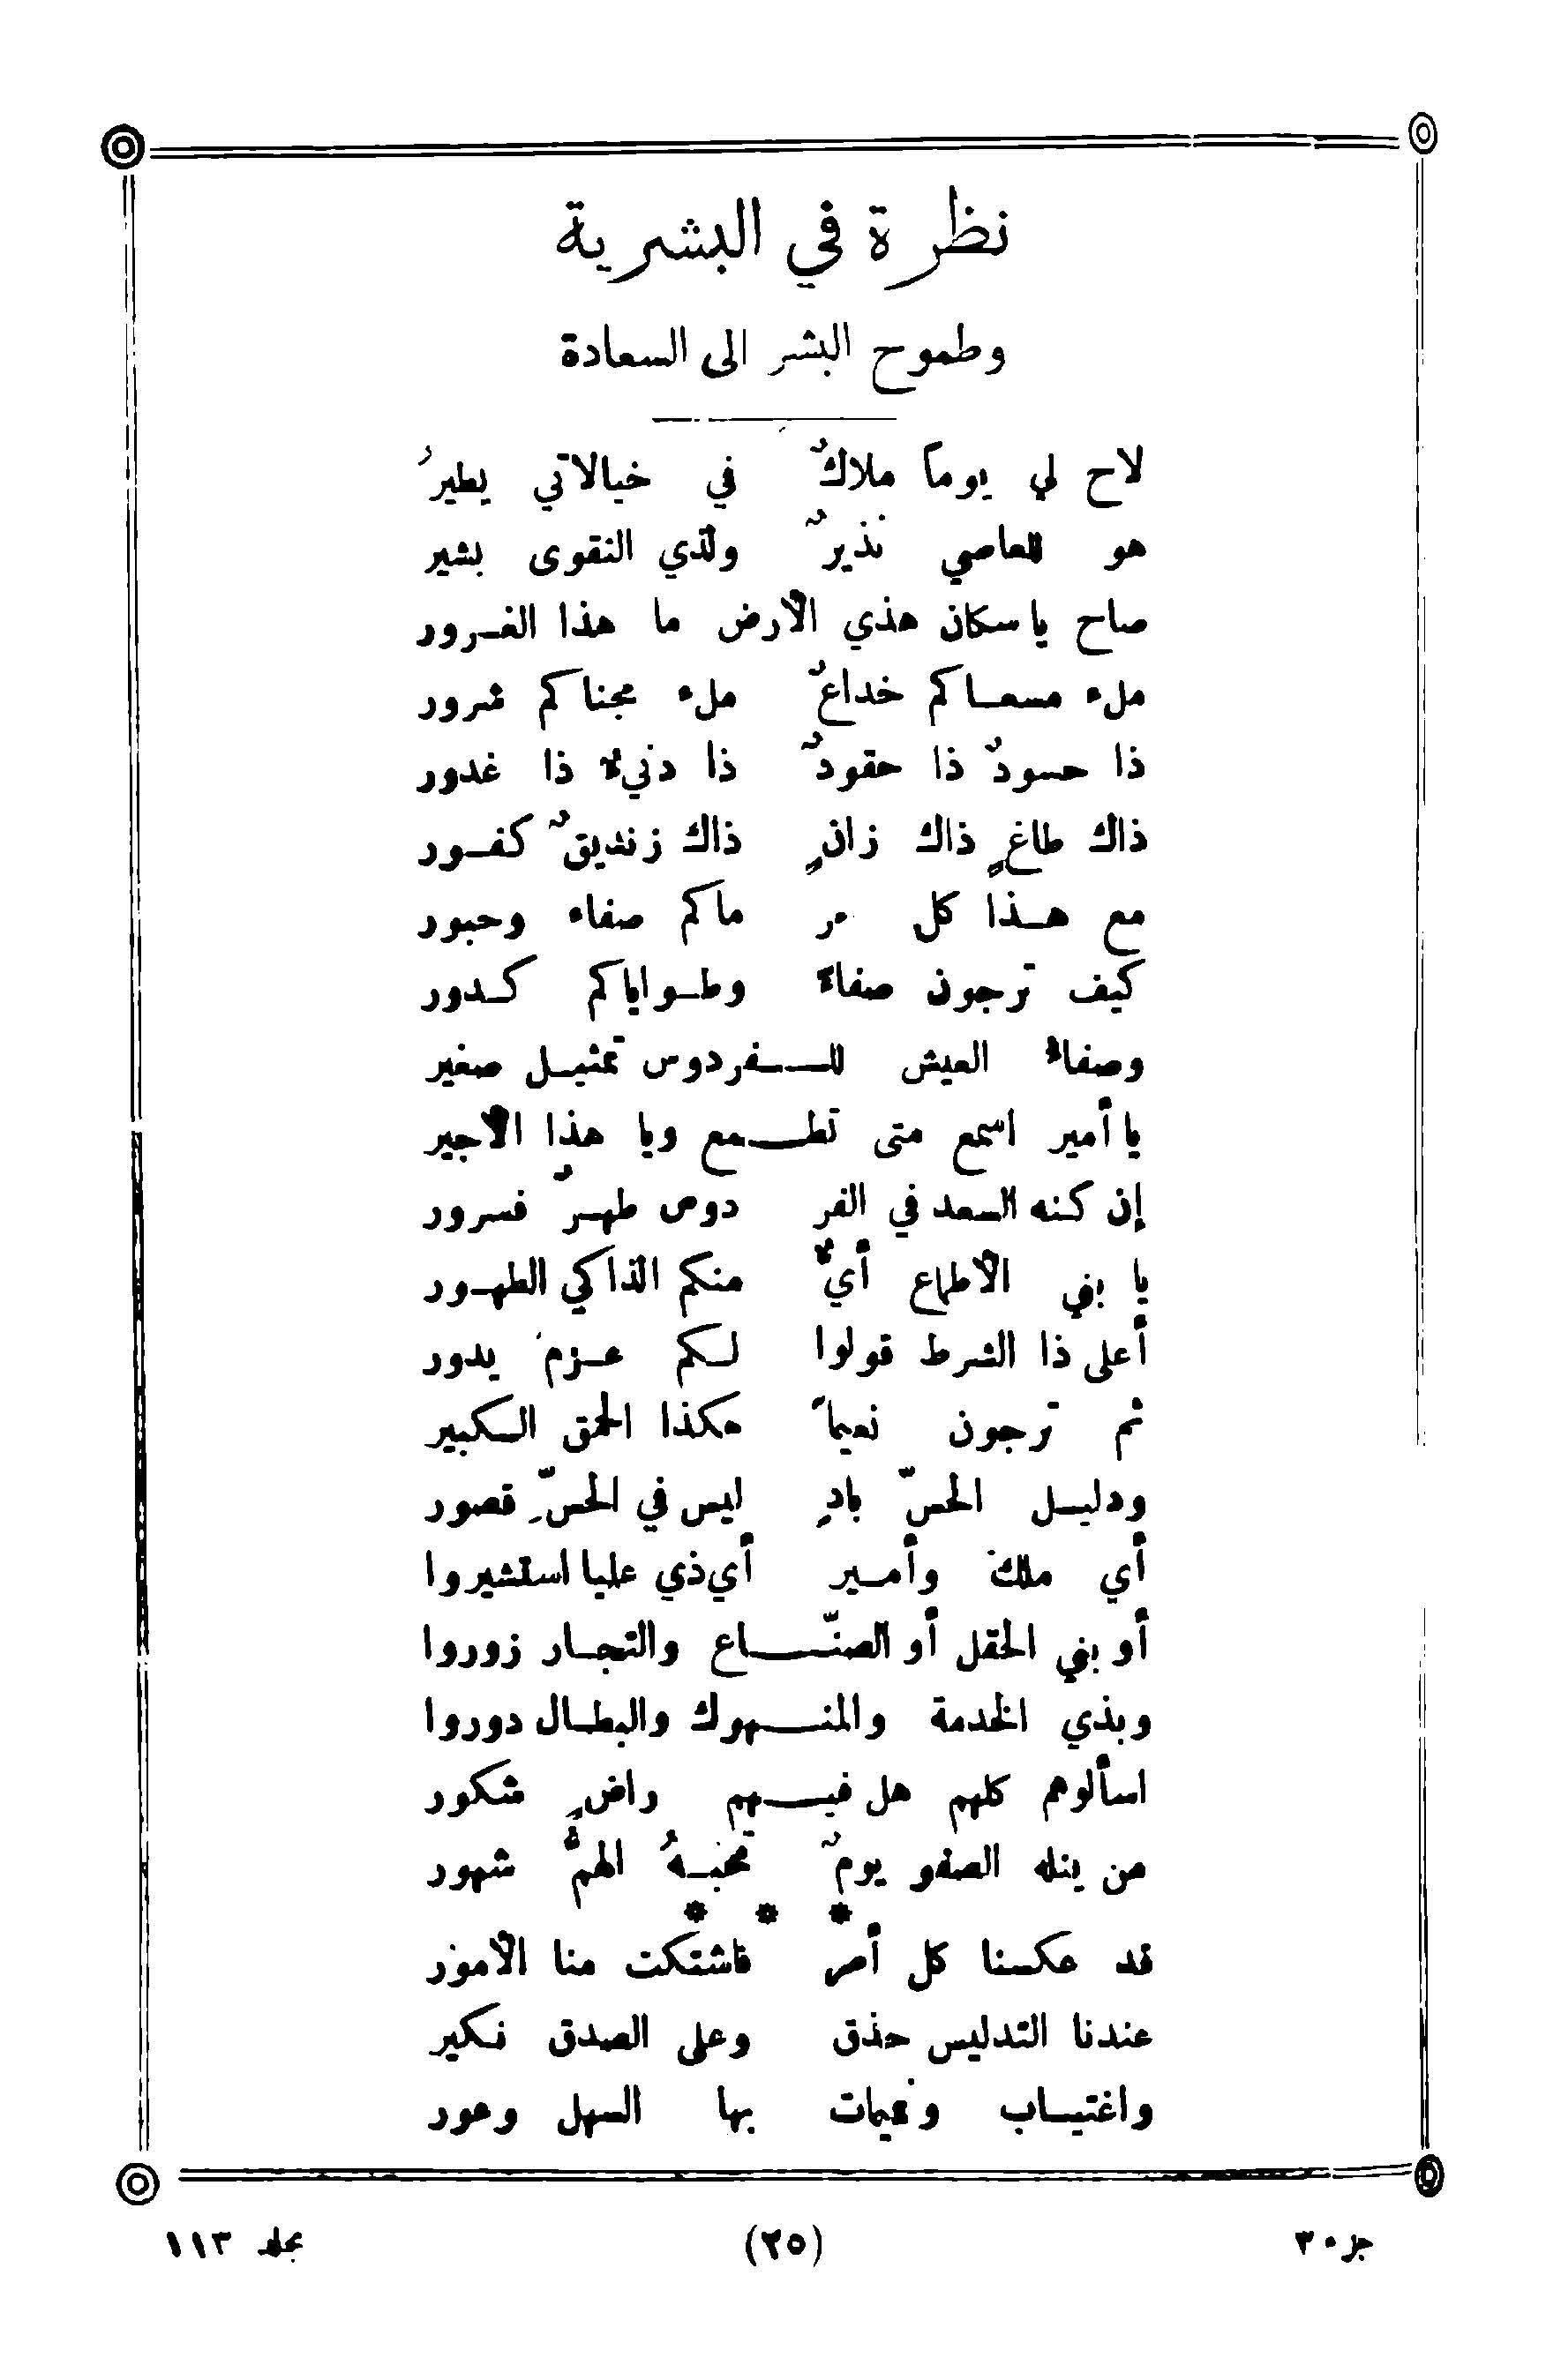 نظرة في البشرية
وطموح البشر الى السعادة
لاح لي يوماً ملاكٌ في خيالاتي يطيرُ
هو للعاصي نذيرٌ ولذي التقوى بشير
صاح يا سكان هذي الأرض ما هذا الغرور
ملء مسعاكم خداعٌ ملء مجناكم شرور
ذا حسودٌ ذا حقودٌ ذا دنيءٌ ذا غدور
ذاك طاغٍ ذاك زانٍ ذاك زنديقٌ كفور
مع هذا كل مر ماكم صفاء وحبور
كيف ترجون صفاءً وطواياكم كدور
وصفاءُ العيش للفردوس تمثيل صغير
يا أمير اسمع متى تطمع ويا هذا الأجير
إن كنه السعد في الفر دوس طهرٌ فسرور
يا بني الأطماع أيٌّ منكم الذاكي الطهور
أعلى ذا الشرط قولوا لكم عزم يدور
ثم ترجون نعيماً هكذا الحمق الكبير
ودليل الحسّ بادٍ ليس في الحسّ قصور
أي ملك وأمير أي ذي عليا استشيروا
أو بني الحقل أو الصنّاع والتجار زوروا
وبذي الخدمة والمنهوك والبطال دوروا
اسألوهم كلهم هل فيهم راضٍ شكور
من ينله الصفو يومٌ تحبهُ الهمُّ شهور
* * *
قد عكسنا كل أمر فاشتكت منا الأمور
عندنا التدليس حذق وعلى الصدق نكير
واغتياب ونميمات بها السهل وعور
جزء ٣ (٢٥) مجلد ١١٣